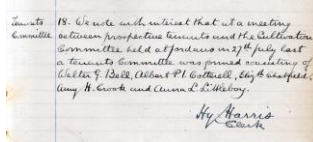 Tenants Committee
18. We note with interest that at a meeting
between prospective tenants and the Cultivation
Committee held at Jordans in 27th July last
a tenants Committee was formed consisting of
Walter G. Bell, Albert P. Cottrell, Eliz th Chatfield,
Amy H. Crook and Anna L. Littleboy.
Hy Harris
Clerk